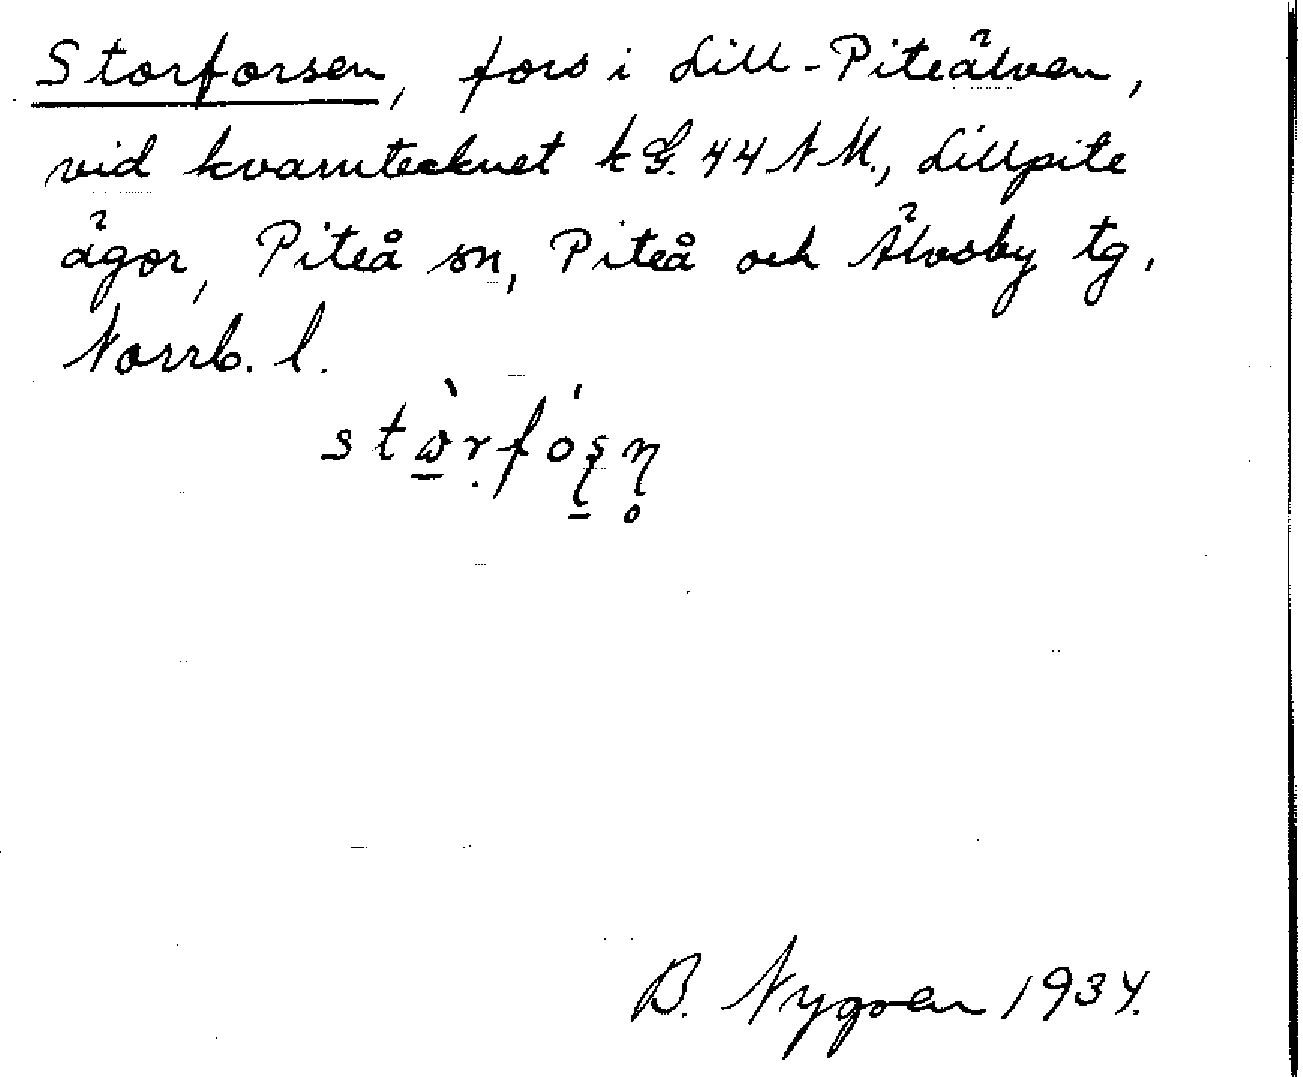 Storforsen, fors i Lill-Piteälven,
vid kvarntecknet k G. 44 N M., Lillpite
ägor, Piteå sn, Piteå och Älvsby tg,
Norrb. l.
B. Nygren 1934.